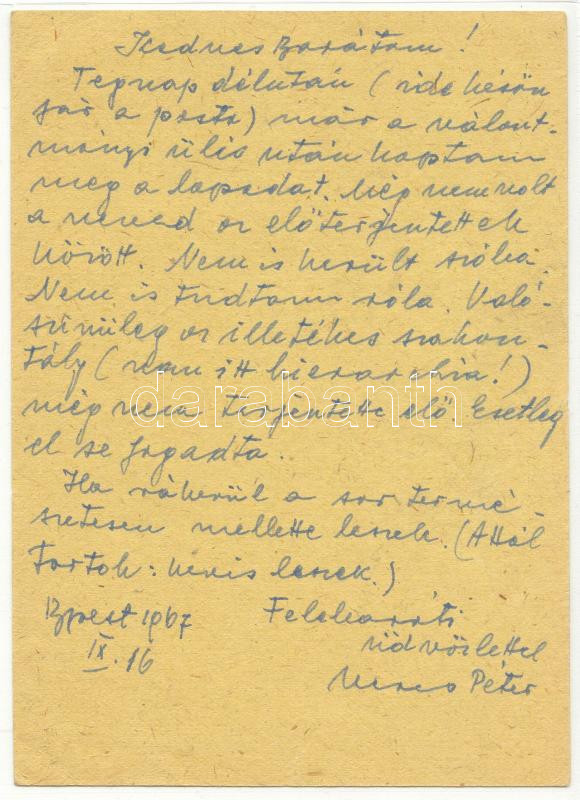 Kedves Barátom!
Tegnap délután (ide későn
jár a posta) már a választ-
mányi ülés után kaptam
meg a lapodat. Még nem volt
a neved az előterjesztettek
között. Nem is került szóba.
Nem is tudtam róla. Való-
szinüleg az illetékes szakosz-
tály (van itt hierarchia!)
még nem terjesztette elő. Esetleg
el se fogadta.
Ha rákerül a sor termé-
szetesen mellette leszek. (Attól
tartok: nem is leszek.)
Bpest 1967 Felebaráti
IX. 16 üdvözlettel
Veres Péter
darabanth